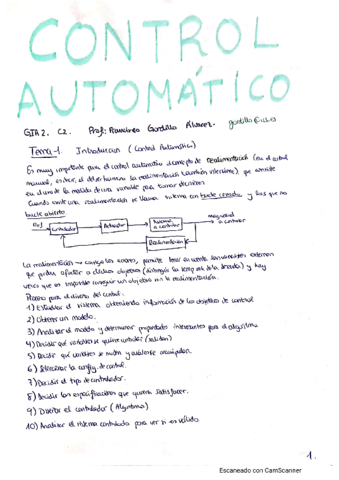 CONTROL
AUTOMÁTICO
GIA 2. C2. Prof: Francisco Gordillo Álvarez.
Tema-1. Introducción (Control Automático)
Es muy importante para el control automático el concepto de realimentación (en el control
manual, es decir, el del ser humano la realimentación también interviene), que consiste
en el uso de la medida de una variable para tomar decisiones
Cuando existe una realimentación se llaman sistemas con bucle cerrado y los que no
bucle abierto.
Ref
Controlador
Actuador
a controlar
magnitud
a controlar
Realimentación
La realimentación → corrige los errores, permite tener en cuenta
que pueden afectar a dichos objetivos
veces que es imposible conseguir un objetivo sin la realimentación.
Pasos para el diseño del control:
1) Estudiar el sistema obteniendo información de los objetivos de control
2) Obtener un modelo.
3) Analizar el modelo y determinar propiedades interesantes para el algoritmo
4) Decidir qué variables se quiere controlar (salidas)
5) Decidir qué variables se miden y cuales se manipulan.
6) Seleccionar la config. de control.
7) Decidir el tipo de controlador.
8) Decidir las especificaciones que quieren satisfacer.
9) Diseñar el controlador (Algoritmo)
10) Analizar el sistema controlado para ver si es válido
1.
Escaneado con CamScanner